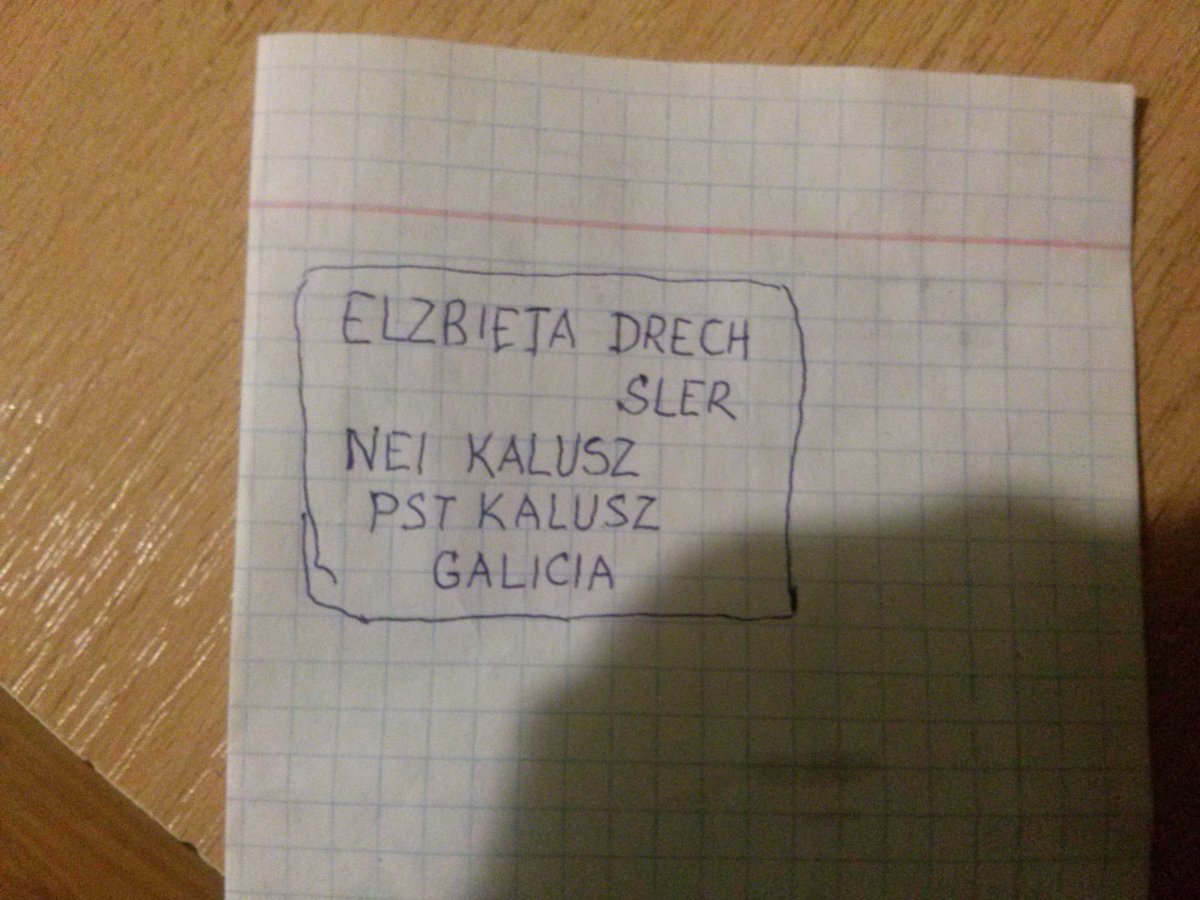 ELZBIETA DRECH
SLER
NEI KALUSZ
PST KALUSZ
GALICIA